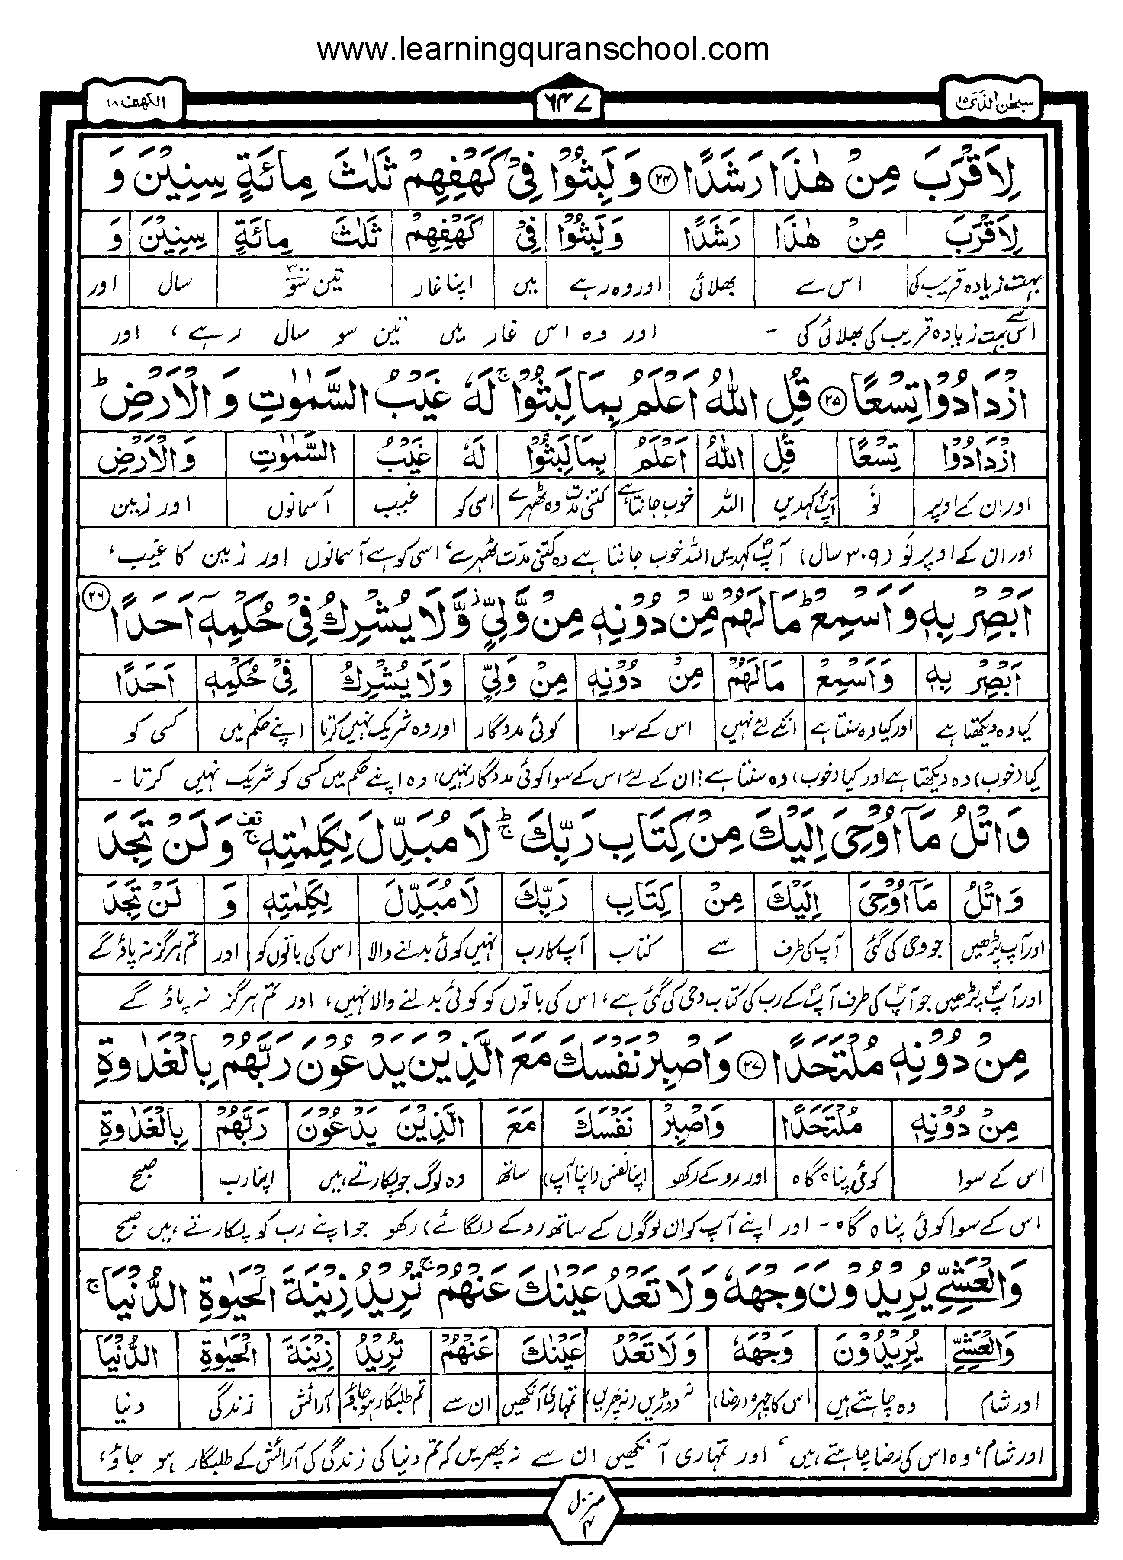 www.learningquranschool.com
سبحٰن الذی ۱۵
۶۴۷
الکہف ۱۸
لِاَقْرَبَ مِنْ هٰذَا رَشَدًا ﴿۲۴﴾ وَلَبِثُوْا فِیْ كَهْفِهِمْ ثَلٰثَ مِائَةٍ سِنِیْنَ وَ
لِاَقْرَبَ مِنْ هٰذَا رَشَدًا وَلَبِثُوْا فِیْ كَهْفِهِمْ ثَلٰثَ مِائَةٍ سِنِیْنَ وَ
بہت زیادہ قریب کی اس سے بھلائی اور وہ رہے میں اپنا غار تین سو سال اور
اس سے بہت زیادہ قریب کی بھلائی کی - اور وہ اس غار میں تین سو سال رہے، اور
ازْدَادُوْا تِسْعًا ﴿۲۵﴾ قُلِ اللّٰهُ اَعْلَمُ بِمَا لَبِثُوْا ۚ لَهٗ غَیْبُ السَّمٰوٰتِ وَ الْاَرْضِ ؕ
ازْدَادُوْا تِسْعًا قُلِ اللّٰهُ اَعْلَمُ بِمَا لَبِثُوْا لَهٗ غَیْبُ السَّمٰوٰتِ وَالْاَرْضِ
اور ان کے اوپر نَو آپؐ کہدیں اللہ خوب جانتا ہے کتنی مدت وہ ٹھہرے اسی کو غیب آسمانوں اور زمین
اور ان کے اوپر نَو (۳۰۹ سال) آپؐ کہدیں اللہ خوب جانتا ہے وہ کتنی مدّت ٹھہرے، اسی کو ہے آسمانوں اور زمین کا غیب،
اَبْصِرْ بِهٖ وَ اَسْمِعْ ؕ مَا لَهُمْ مِّنْ دُوْنِهٖ مِنْ وَّلِیٍّ ۫ وَّلَا یُشْرِكُ فِیْ حُكْمِهٖۤ اَحَدًا ﴿۲۶﴾
اَبْصِرْ بِهٖ وَاَسْمِعْ مَا لَهُمْ مِنْ دُوْنِهٖ مِنْ وَلِیٍّ وَلَا یُشْرِكُ فِیْ حُكْمِهٖ اَحَدًا
کیا وہ دیکھتا ہے اور کیا وہ سنتا ہے انکے لئے نہیں اس کے سوا کوئی مددگار اور وہ شریک نہیں کرتا اپنے حکم میں کسی کو
کیا (خوب) وہ دیکھتا ہے اور کیا (خوب) وہ سنتا ہے! ان کے لئے اس کے سوا کوئی مددگار نہیں، وہ اپنے حکم میں کسی کو شریک نہیں کرتا -
وَاتْلُ مَاۤ اُوْحِیَ اِلَیْكَ مِنْ كِتَابِ رَبِّكَ ؕۚ لَا مُبَدِّلَ لِكَلِمٰتِهٖ ۚ قف وَلَنْ تَجِدَ
وَاتْلُ مَاۤ اُوْحِیَ اِلَیْكَ مِنْ كِتَابِ رَبِّكَ لَا مُبَدِّلَ لِكَلِمٰتِهٖ وَ لَنْ تَجِدَ
اور آپ پڑھیں جو وحی کی گئی آپ کی طرف سے کتاب آپ کا رب نہیں کوئی بدلنے والا اس کی باتوں کو اور تم ہرگز نہ پاؤ گے
اور آپؐ پڑھیں جو آپؐ کی طرف آپؐ کے رب کی کتاب وحی کی گئی ہے، اس کی باتوں کو کوئی بدلنے والا نہیں، اور تم ہرگز نہ پاؤ گے
مِنْ دُوْنِهٖ مُلْتَحَدًا ﴿۲۷﴾ وَاصْبِرْ نَفْسَكَ مَعَ الَّذِیْنَ یَدْعُوْنَ رَبَّهُمْ بِالْغَدٰوةِ
مِنْ دُوْنِهٖ مُلْتَحَدًا وَاصْبِرْ نَفْسَكَ مَعَ الَّذِیْنَ یَدْعُوْنَ رَبَّهُمْ بِالْغَدٰوةِ
اس کے سوا کوئی پناہ گاہ اور روکے رکھو اپنا نفس (اپنا آپ) ساتھ وہ لوگ جو پکارتے ہیں اپنا رب صبح
اس کے سوا کوئی پناہ گاہ - اور اپنے آپ کو ان لوگوں کے ساتھ روکے (لگائے) رکھو جو اپنے رب کو پکارتے ہیں صبح
وَالْعَشِیِّ یُرِیْدُوْنَ وَجْهَهٗ وَلَا تَعْدُ عَیْنٰكَ عَنْهُمْ ۚ تُرِیْدُ زِیْنَةَ الْحَیٰوةِ الدُّنْیَا ۚ
وَالْعَشِیِّ یُرِیْدُوْنَ وَجْهَهٗ وَلَا تَعْدُ عَیْنٰكَ عَنْهُمْ تُرِیْدُ زِیْنَةَ الْحَیٰوةِ الدُّنْیَا
اور شام وہ چاہتے ہیں اس کا چہرہ (رضا) نہ دوڑیں (نہ پھریں) تمہاری آنکھیں ان سے تم طلبگار ہو جاؤ آرائش زندگی دنیا
اور شام، وہ اس کی رضا چاہتے ہیں، اور تمہاری آنکھیں ان سے نہ پھریں کہ تم دنیا کی زندگی کی آرائش کے طلبگار ہو جاؤ،
منزل ۴